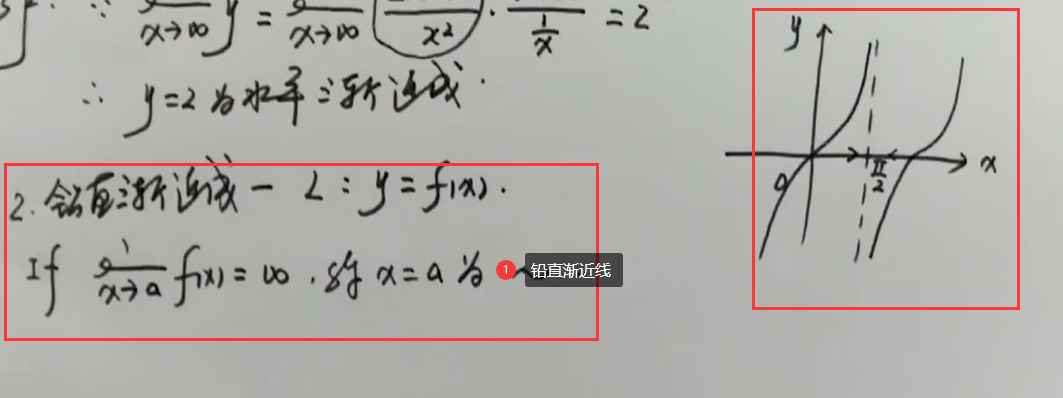 ∵ x→∞ y = x→∞ x² · 1/x = 2
∴ y=2 为水平渐近线.
2. 铅直渐近线 — L : y = f(x).
If lim x→a f(x) = ∞ . 称 x = a 为
1 铅直渐近线
y
0
π/2
x